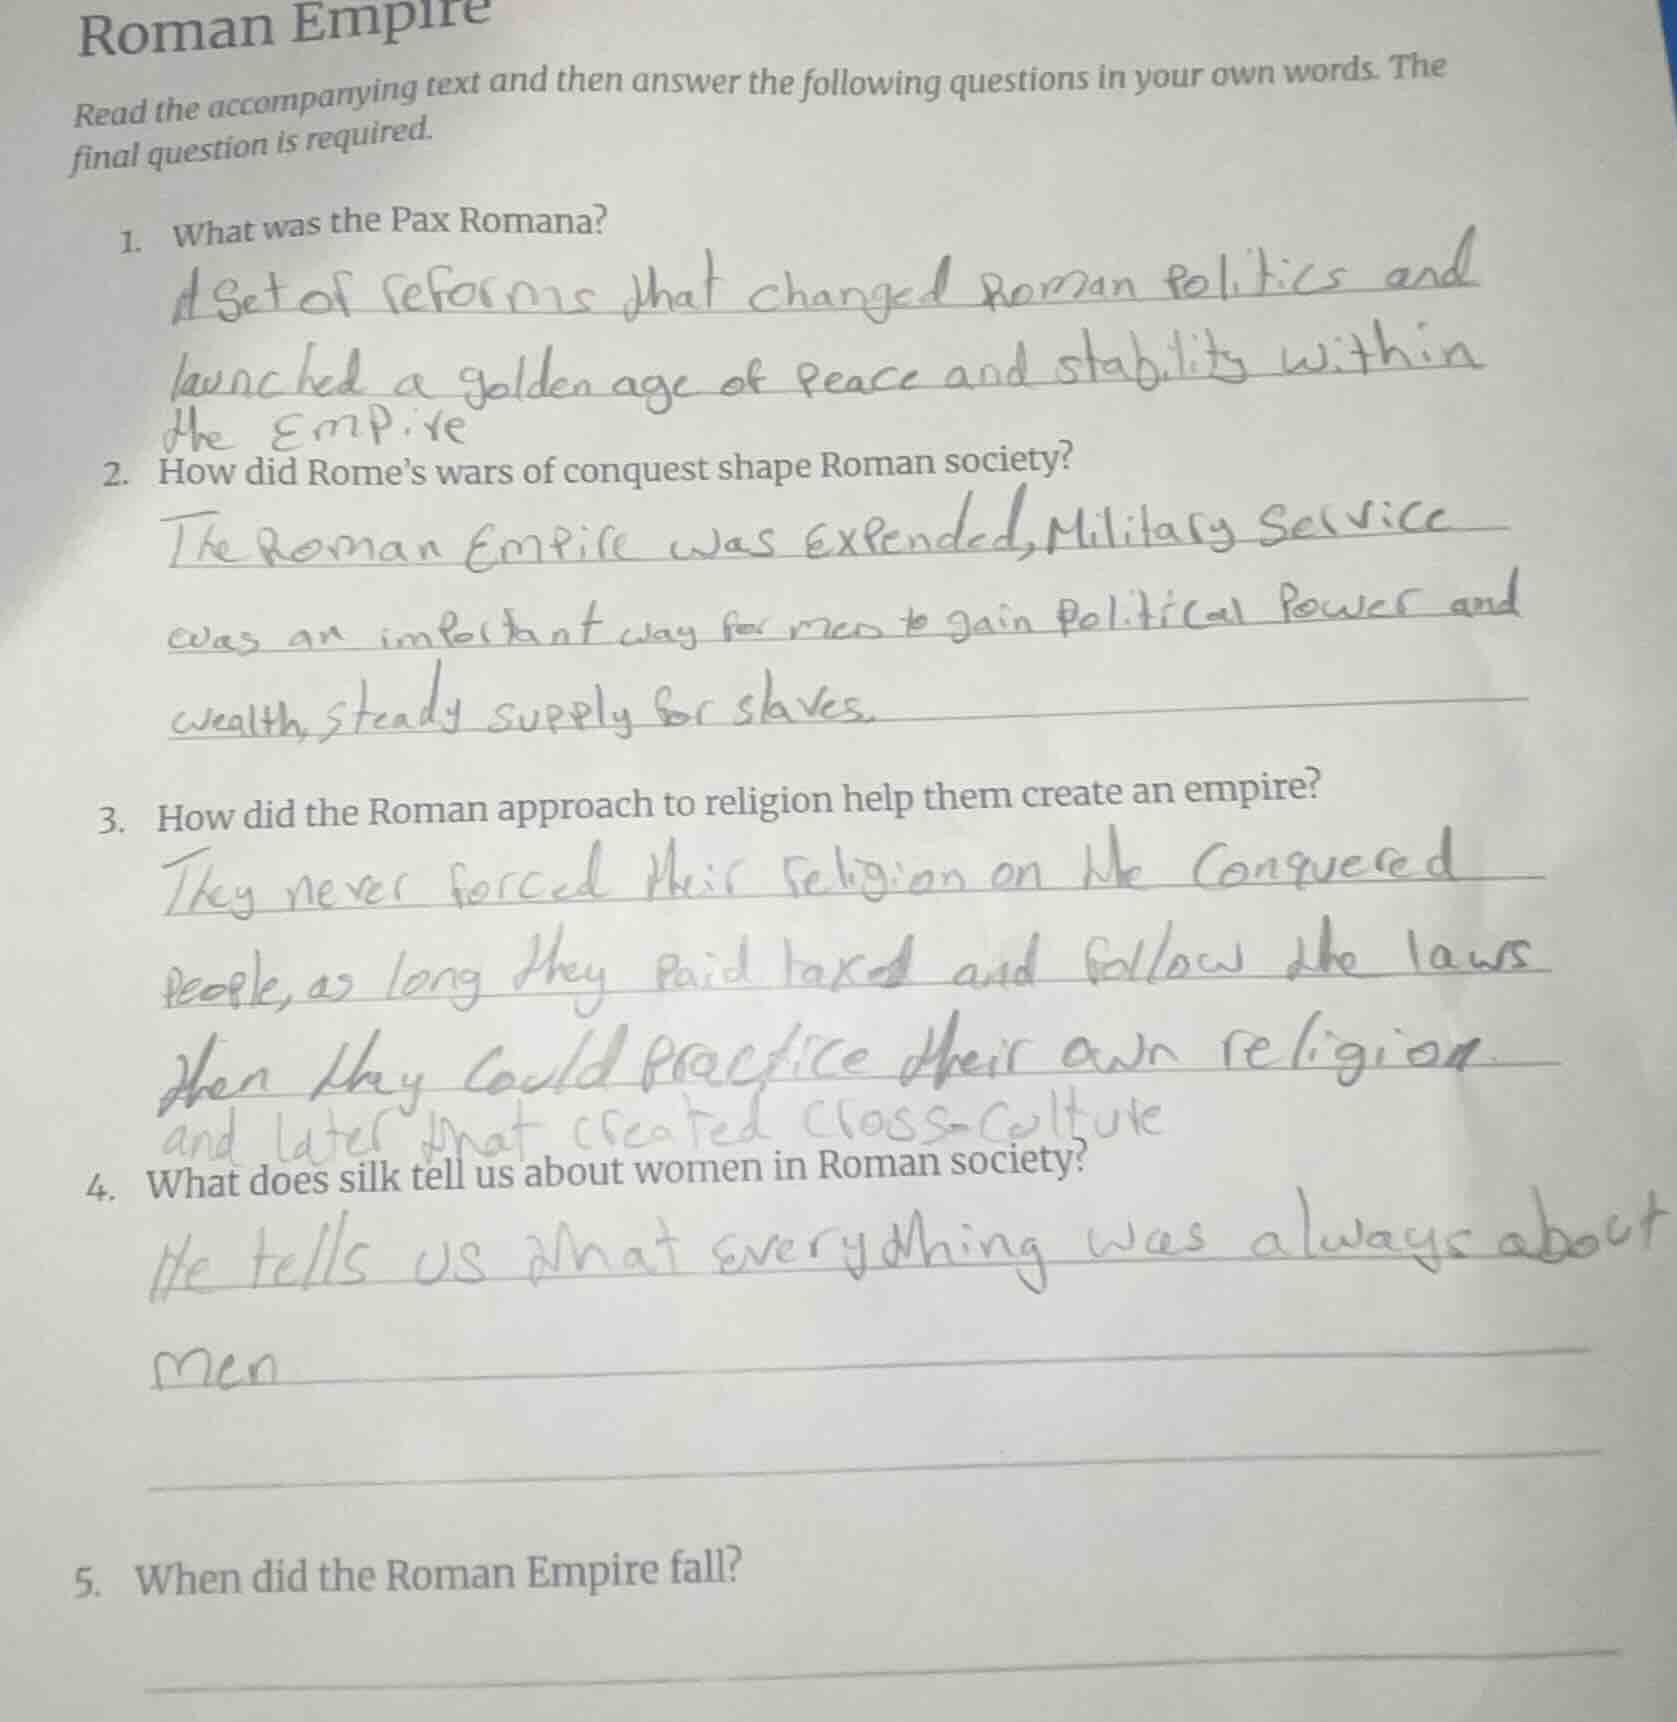 Roman Empire
Read the accompanying text and then answer the following questions in your own words. The
final question is required.
1. What was the Pax Romana?
A Set of reforms that changed Roman Politics and
launched a golden age of Peace and stability within
the Empire
2. How did Rome's wars of conquest shape Roman society?
The Roman Empire was Expended, Military Service
was an important way for men to gain Political Power and
wealth, steady supply for slaves.
3. How did the Roman approach to religion help them create an empire?
They never forced their religion on the Conquered
People, as long they Paid taxed and follow the laws
then they Could Practice their own religion.
and later that created Cross-Culture
4. What does silk tell us about women in Roman society?
He tells us that everything was always about
men
5. When did the Roman Empire fall?